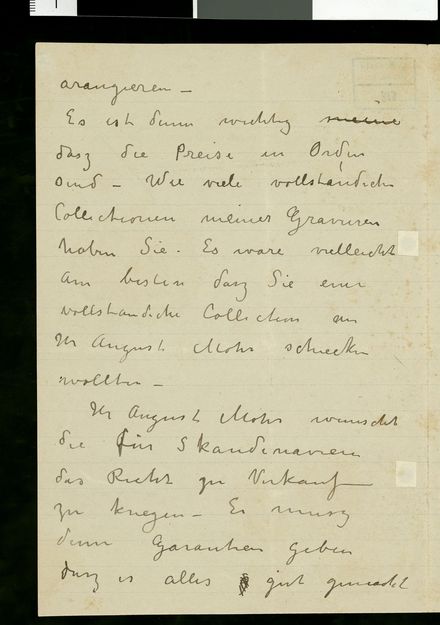 arangieren –
Es ist dann wichtig meine
dasz die Preise in Orden
sind – Wie viele vollständiche
Collectionen meiner Gravuren
haben Sie. Es ware vielleicht
am besten dasz Sie eine
vollstandiche Collection an
Hr August Mohr schicken
wollten –
Hr August Mohr wunscht
die für Skandinavien
das Recht zu Verkauf
zu kriegen – Er musz
dann Garantien geben
dasz es alles gut gemacht